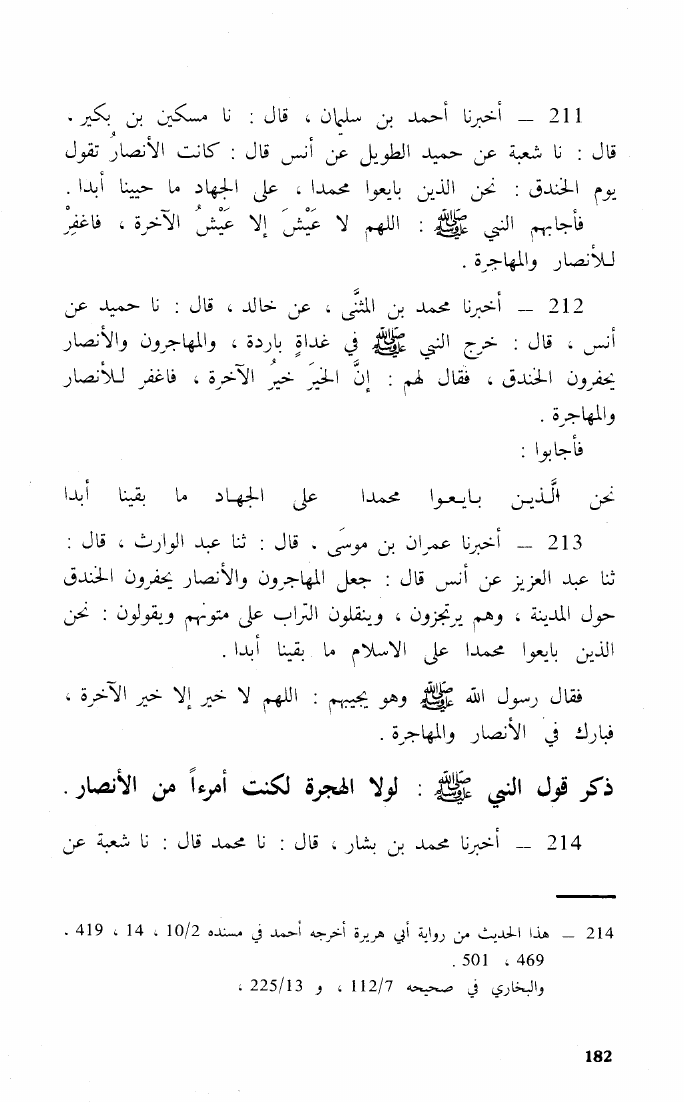 211 — أخبرنا أحمد بن سليمان ، قال : نا مسكين بن بكير .
قال : نا شعبة عن حميد الطويل عن أنس قال : كانت الأنصارُ تقول
يوم الخندق : نحن الذين بايعوا محمدا ، على الجهاد ما حيينا أبدا .
فأجابهم النبي ﷺ : اللهم لا عَيْشَ إلا عَيْشُ الآخرة ، فاغفِرْ
للأنصار والمهاجرة .
212 — أخبرنا محمد بن المثنَّى ، عن خالد ، قال : نا حميد عن
أنس ، قال : خرج النبي ﷺ في غداةٍ باردة ، والمهاجرون والأنصار
يحفرون الخندق ، فقال لهم : إنَّ الخيرَ خيرُ الآخرة ، فاغفر للأنصار
والمهاجرة .
فأجابوا :
نحن الَّذين بايعوا محمدا على الجهاد ما بقينا أبدا
213 — أخبرنا عمران بن موسَى . قال : ثنا عبد الوارث ، قال :
ثنا عبد العزيز عن أنس قال : جعل المهاجرون والأنصار يحفرون الخندق
حول المدينة ، وهم يرتجزون ، وينقلون التراب على متونهم ويقولون : نحن
الذين بايعوا محمدا على الاسلام ما بقينا أبدا .
فقال رسول الله ﷺ وهو يجيبهم : اللهم لا خير إلا خير الآخرة ،
فبارك في الأنصار والمهاجرة .
ذكر قول النبي ﷺ : لولا الهجرة لكنت أمرءاً من الأنصار .
214 — أخبرنا محمد بن بشار ، قال : نا محمد قال : نا شعبة عن
214 — هذا الحديث من رواية أبي هريرة أخرجه أحمد في مسنده 10/2 ، 14 ، 419 .
469 ، 501 .
والبخاري في صحيحه 112/7 ، و 225/13 ،
182